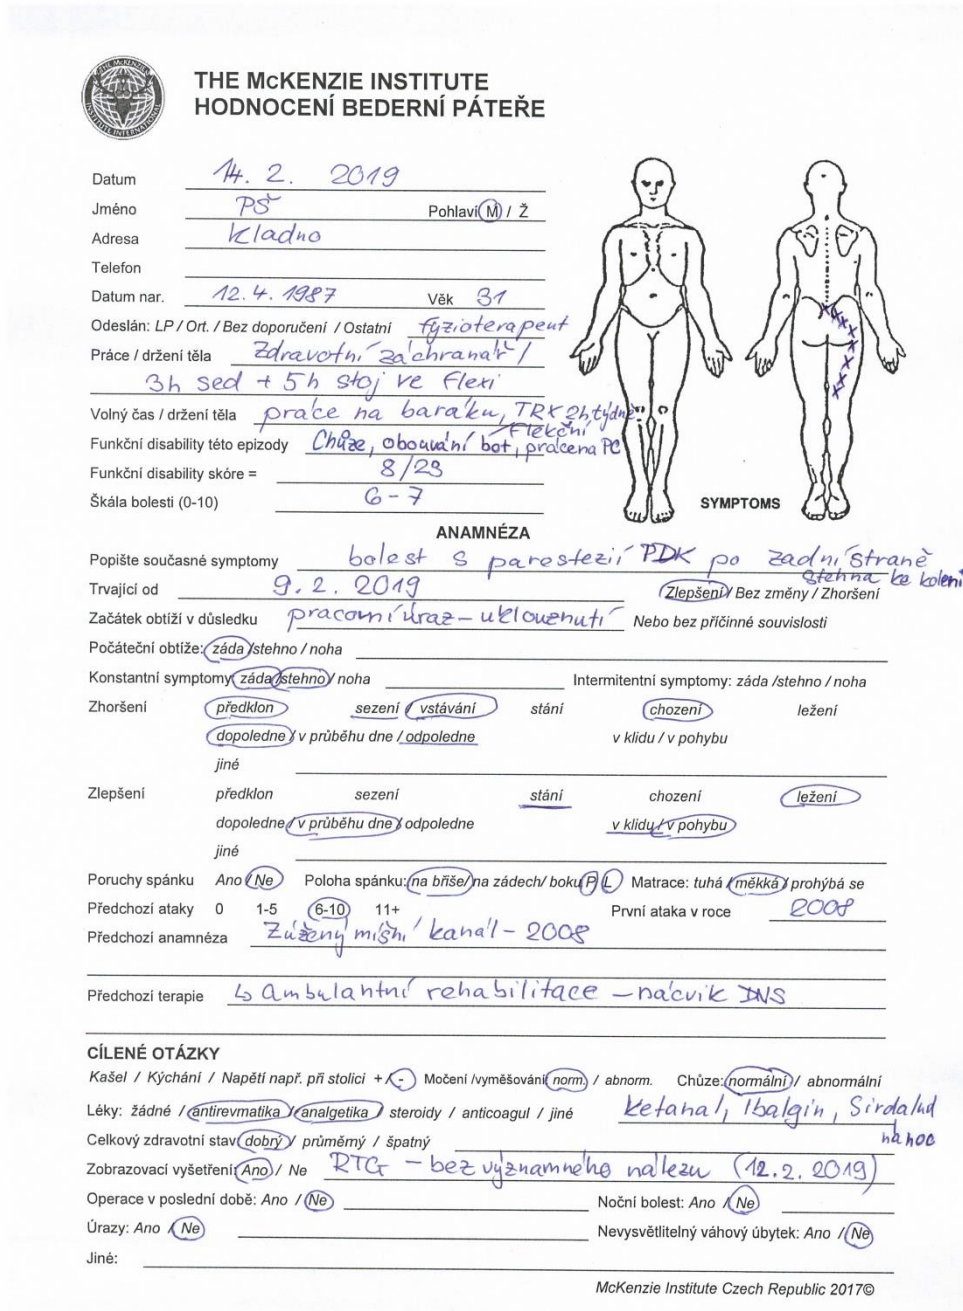 THE McKENZIE INSTITUTE
HODNOCENÍ BEDERNÍ PÁTEŘE
Datum 14. 2. 2019
Jméno PŠ Pohlaví M / Ž
Adresa Kladno
Telefon
Datum nar. 12. 4. 1987 Věk 31
Odeslán: LP / Ort. / Bez doporučení / Ostatní fyzioterapeut
Práce / držení těla Zdravotní záchranář /
3h sed + 5h stoj ve flexi
Volný čas / držení těla práce na baráku, TRX 2h, týdně
flekční
Funkční disability této epizody Chůze, obouvání bot, práce na PC
Funkční disability skóre = 8/23
Škála bolesti (0-10) 6-7
SYMPTOMS
ANAMNÉZA
Popište současné symptomy bolest s parestezií PDK po zadní straně
stehna ke koleni
Trvající od 9. 2. 2019 Zlepšení / Bez změny / Zhoršení
Začátek obtíží v důsledku pracovní úraz - uklouznutí Nebo bez příčinné souvislosti
Počáteční obtíže: záda /stehno / noha
Konstantní symptomy: záda /stehno / noha Intermitentní symptomy: záda /stehno / noha
Zhoršení předklon sezení / vstávání stání chození ležení
dopoledne / v průběhu dne / odpoledne v klidu / v pohybu
jiné
Zlepšení předklon sezení stání chození ležení
dopoledne / v průběhu dne / odpoledne v klidu / v pohybu
jiné
Poruchy spánku Ano / Ne Poloha spánku: na břiše/ na zádech/ boku P L Matrace: tuhá / měkká / prohýbá se
Předchozí ataky 0 1-5 6-10 11+ První ataka v roce 2008
Předchozí anamnéza Zúžený míšní kanál - 2008
Předchozí terapie ↳ ambulantní rehabilitace - nácvik DNS
CÍLENÉ OTÁZKY
Kašel / Kýchání / Napětí např. při stolici + / - Močení /vyměšování norm. / abnorm. Chůze: normální / abnormální
Léky: žádné / antirevmatika / analgetika / steroidy / anticoagul / jiné Ketanal, Ibalgin, Sirdalud
na noc
Celkový zdravotní stav dobrý / průměrný / špatný
Zobrazovací vyšetření: Ano / Ne RTG - bez významného nálezu (12. 2. 2019)
Operace v poslední době: Ano / Ne Noční bolest: Ano / Ne
Úrazy: Ano / Ne Nevysvětlitelný váhový úbytek: Ano / Ne
Jiné:
McKenzie Institute Czech Republic 2017©